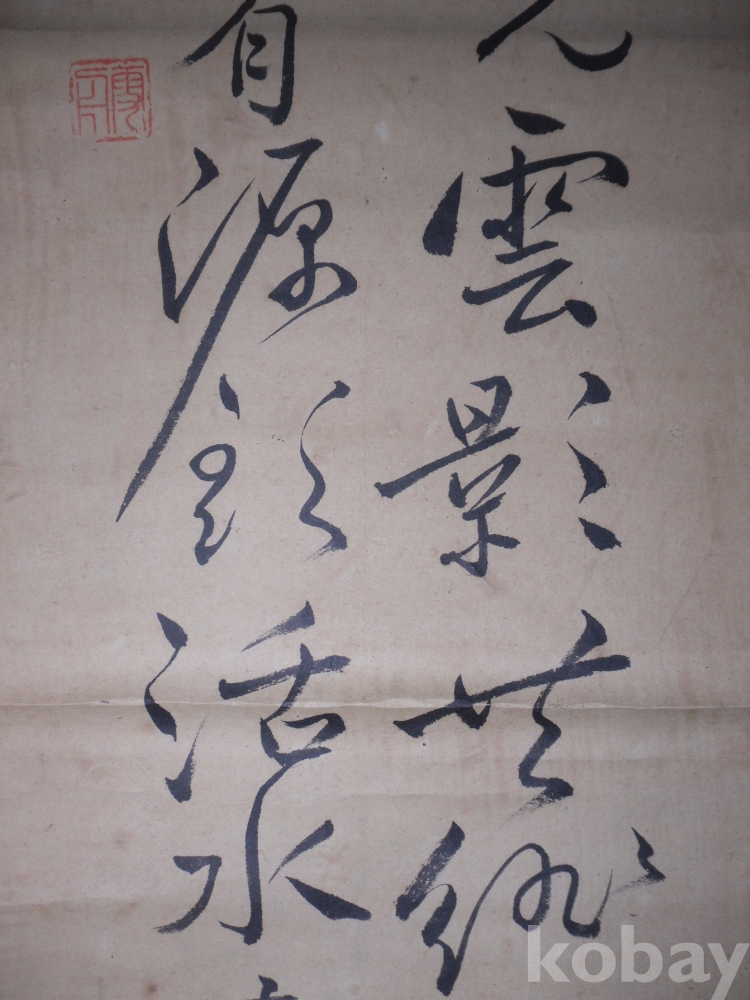 雲影共徘
有源頭活水
kobay